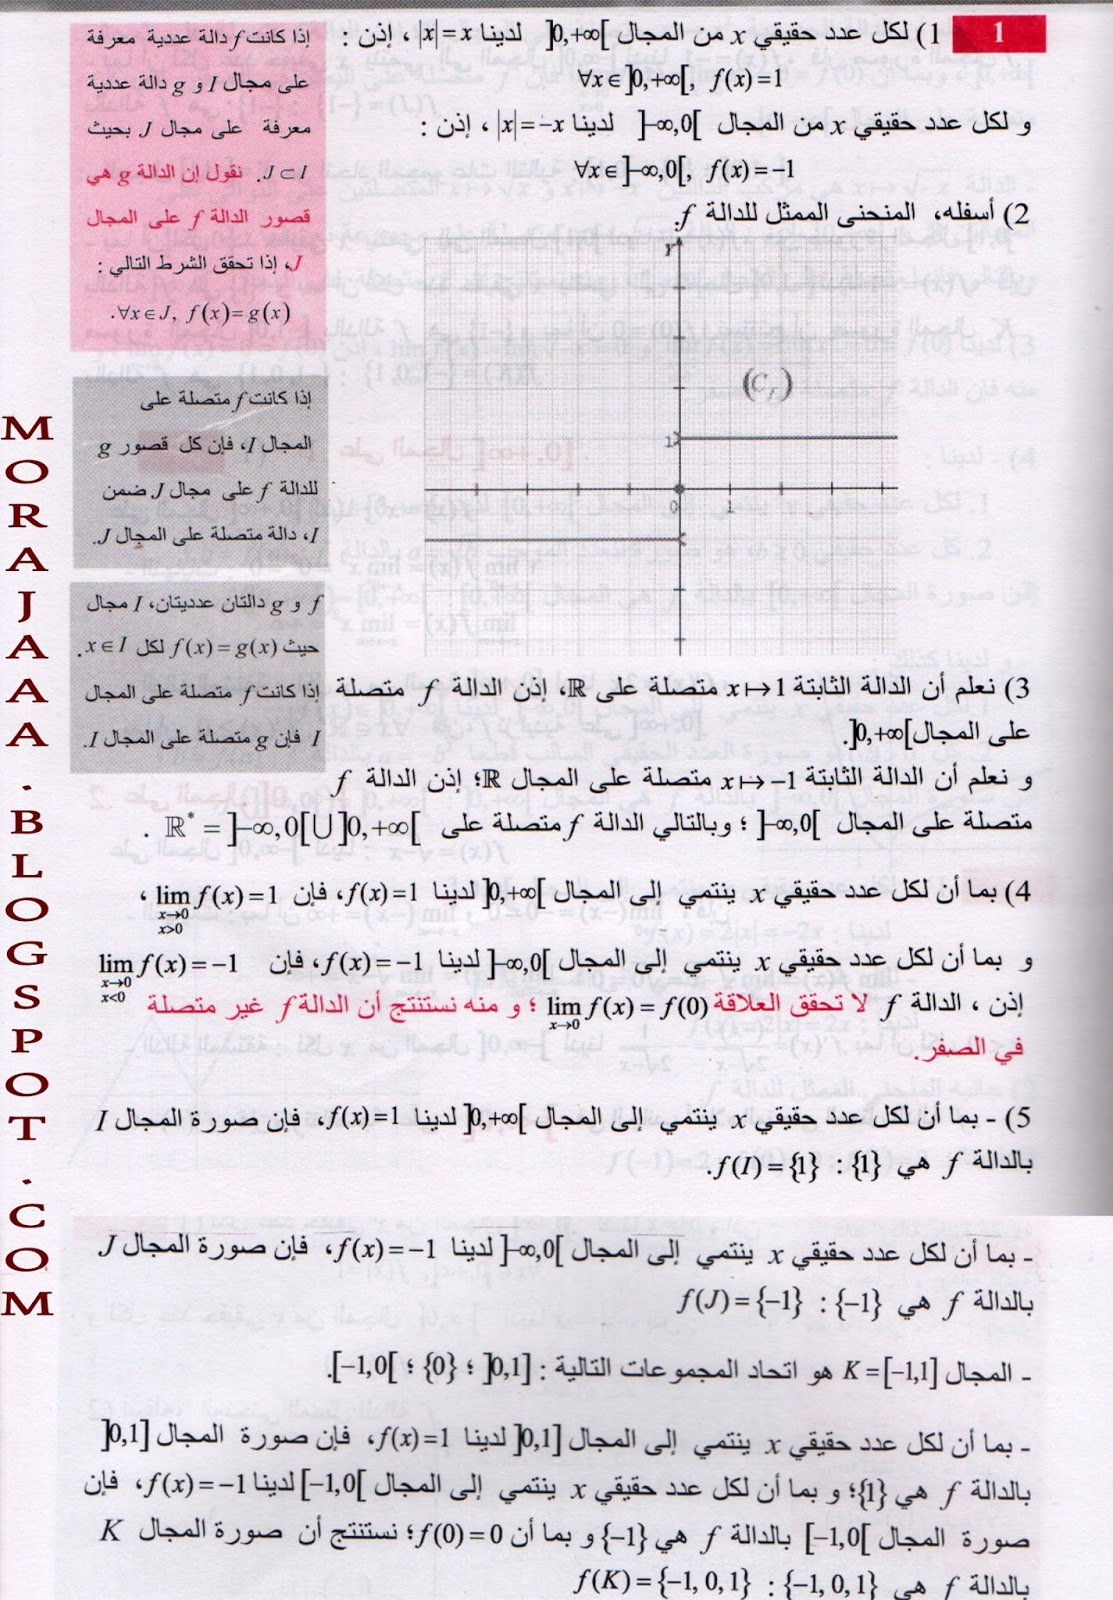 1
1) لكل عدد حقيقي x من المجال ]0,+∞[ لدينا |x| = x ، إذن :
∀x ∈ ]0,+∞[, f(x) = 1
و لكل عدد حقيقي x من المجال ]-∞,0[ لدينا |x| = -x ، إذن :
∀x ∈ ]-∞,0[, f(x) = -1
2) أسفله، المنحنى الممثل للدالة f.
Y
(C_f)
1
0
1
3) نعلم أن الدالة الثابتة x ↦ 1 متصلة على ℝ، إذن الدالة f متصلة
على المجال ]0,+∞[.
و نعلم أن الدالة الثابتة x ↦ -1 متصلة على المجال ℝ؛ إذن الدالة f
متصلة على المجال ]-∞,0[ ؛ وبالتالي الدالة f متصلة على ℝ* = ]-∞,0[∪]0,+∞[ .
4) بما أن لكل عدد حقيقي x ينتمي إلى المجال ]0,+∞[ لدينا f(x) = 1، فإن lim f(x) = 1 ،
x→0
x>0
و بما أن لكل عدد حقيقي x ينتمي إلى المجال ]-∞,0[ لدينا f(x) = -1، فإن lim f(x) = -1
x→0
x<0
إذن ، الدالة f لا تحقق العلاقة lim f(x) = f(0) ؛ و منه نستنتج أن الدالة f غير متصلة
x→0
في الصفر.
5) - بما أن لكل عدد حقيقي x ينتمي إلى المجال ]0,+∞[ لدينا f(x) = 1، فإن صورة المجال I
بالدالة f هي {1} : f(I) = {1}.
- بما أن لكل عدد حقيقي x ينتمي إلى المجال ]-∞,0[ لدينا f(x) = -1، فإن صورة المجال J
بالدالة f هي {-1} : f(J) = {-1}
- المجال K = [-1,1] هو اتحاد المجموعات التالية : ]0,1] ؛ {0} ؛ [-1,0[.
- بما أن لكل عدد حقيقي x ينتمي إلى المجال ]0,1] لدينا f(x) = 1، فإن صورة المجال ]0,1]
بالدالة f هي {1}؛ و بما أن لكل عدد حقيقي x ينتمي إلى المجال [-1,0[ لدينا f(x) = -1، فإن
صورة المجال [-1,0[ بالدالة f هي {-1} و بما أن f(0) = 0؛ نستنتج أن صورة المجال K
بالدالة f هي {-1, 0, 1} : f(K) = {-1, 0, 1}
إذا كانت f دالة عددية معرفة
على مجال I و g دالة عددية
معرفة على مجال J بحيث
J ⊂ I. نقول إن الدالة g هي
قصور الدالة f على المجال
J، إذا تحقق الشرط التالي :
∀x ∈ J, f(x) = g(x).
إذا كانت f متصلة على
المجال I، فإن كل قصور g
للدالة f على مجال J ضمن
I، دالة متصلة على المجال J.
f و g دالتان عدديتان، I مجال
حيث f(x) = g(x) لكل x ∈ I.
إذا كانت f متصلة على المجال
I فإن g متصلة على المجال I.
MORAJAAA.BLOGSPOT.COM